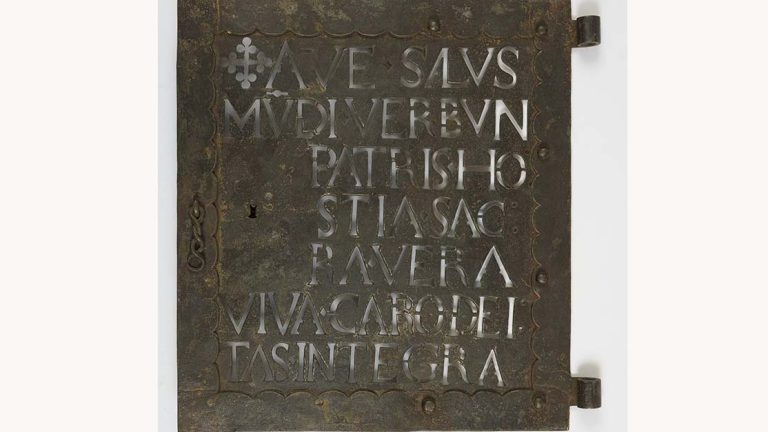 ✤ AVE · SALVS
MŪDI · VERBVN
PATRIS · HO
STIA · SAC
RA · VERA
VIVA · CARO · DEI
TAS · INTEGRA